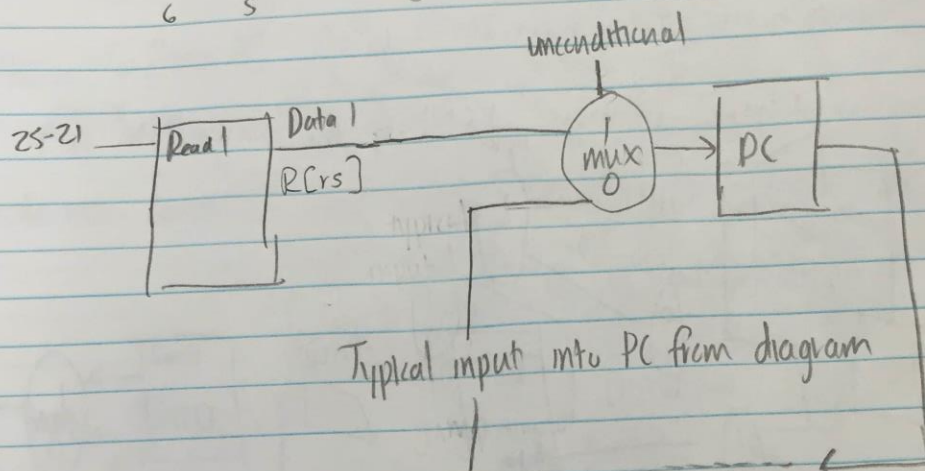 6 5
unconditional
25-21 Read 1 Data 1 1 PC
R[rs] mux
0
Typical input into PC from diagram